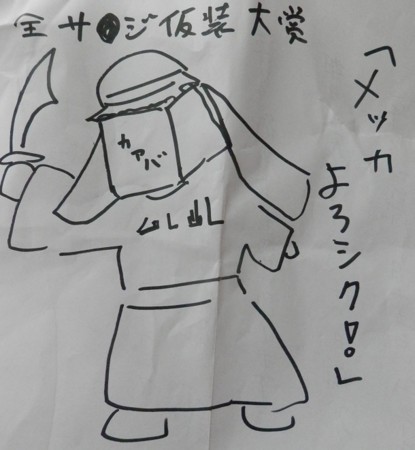 全サ●ジ仮装大賞
「メッカ
よろシク!!」
カアバ